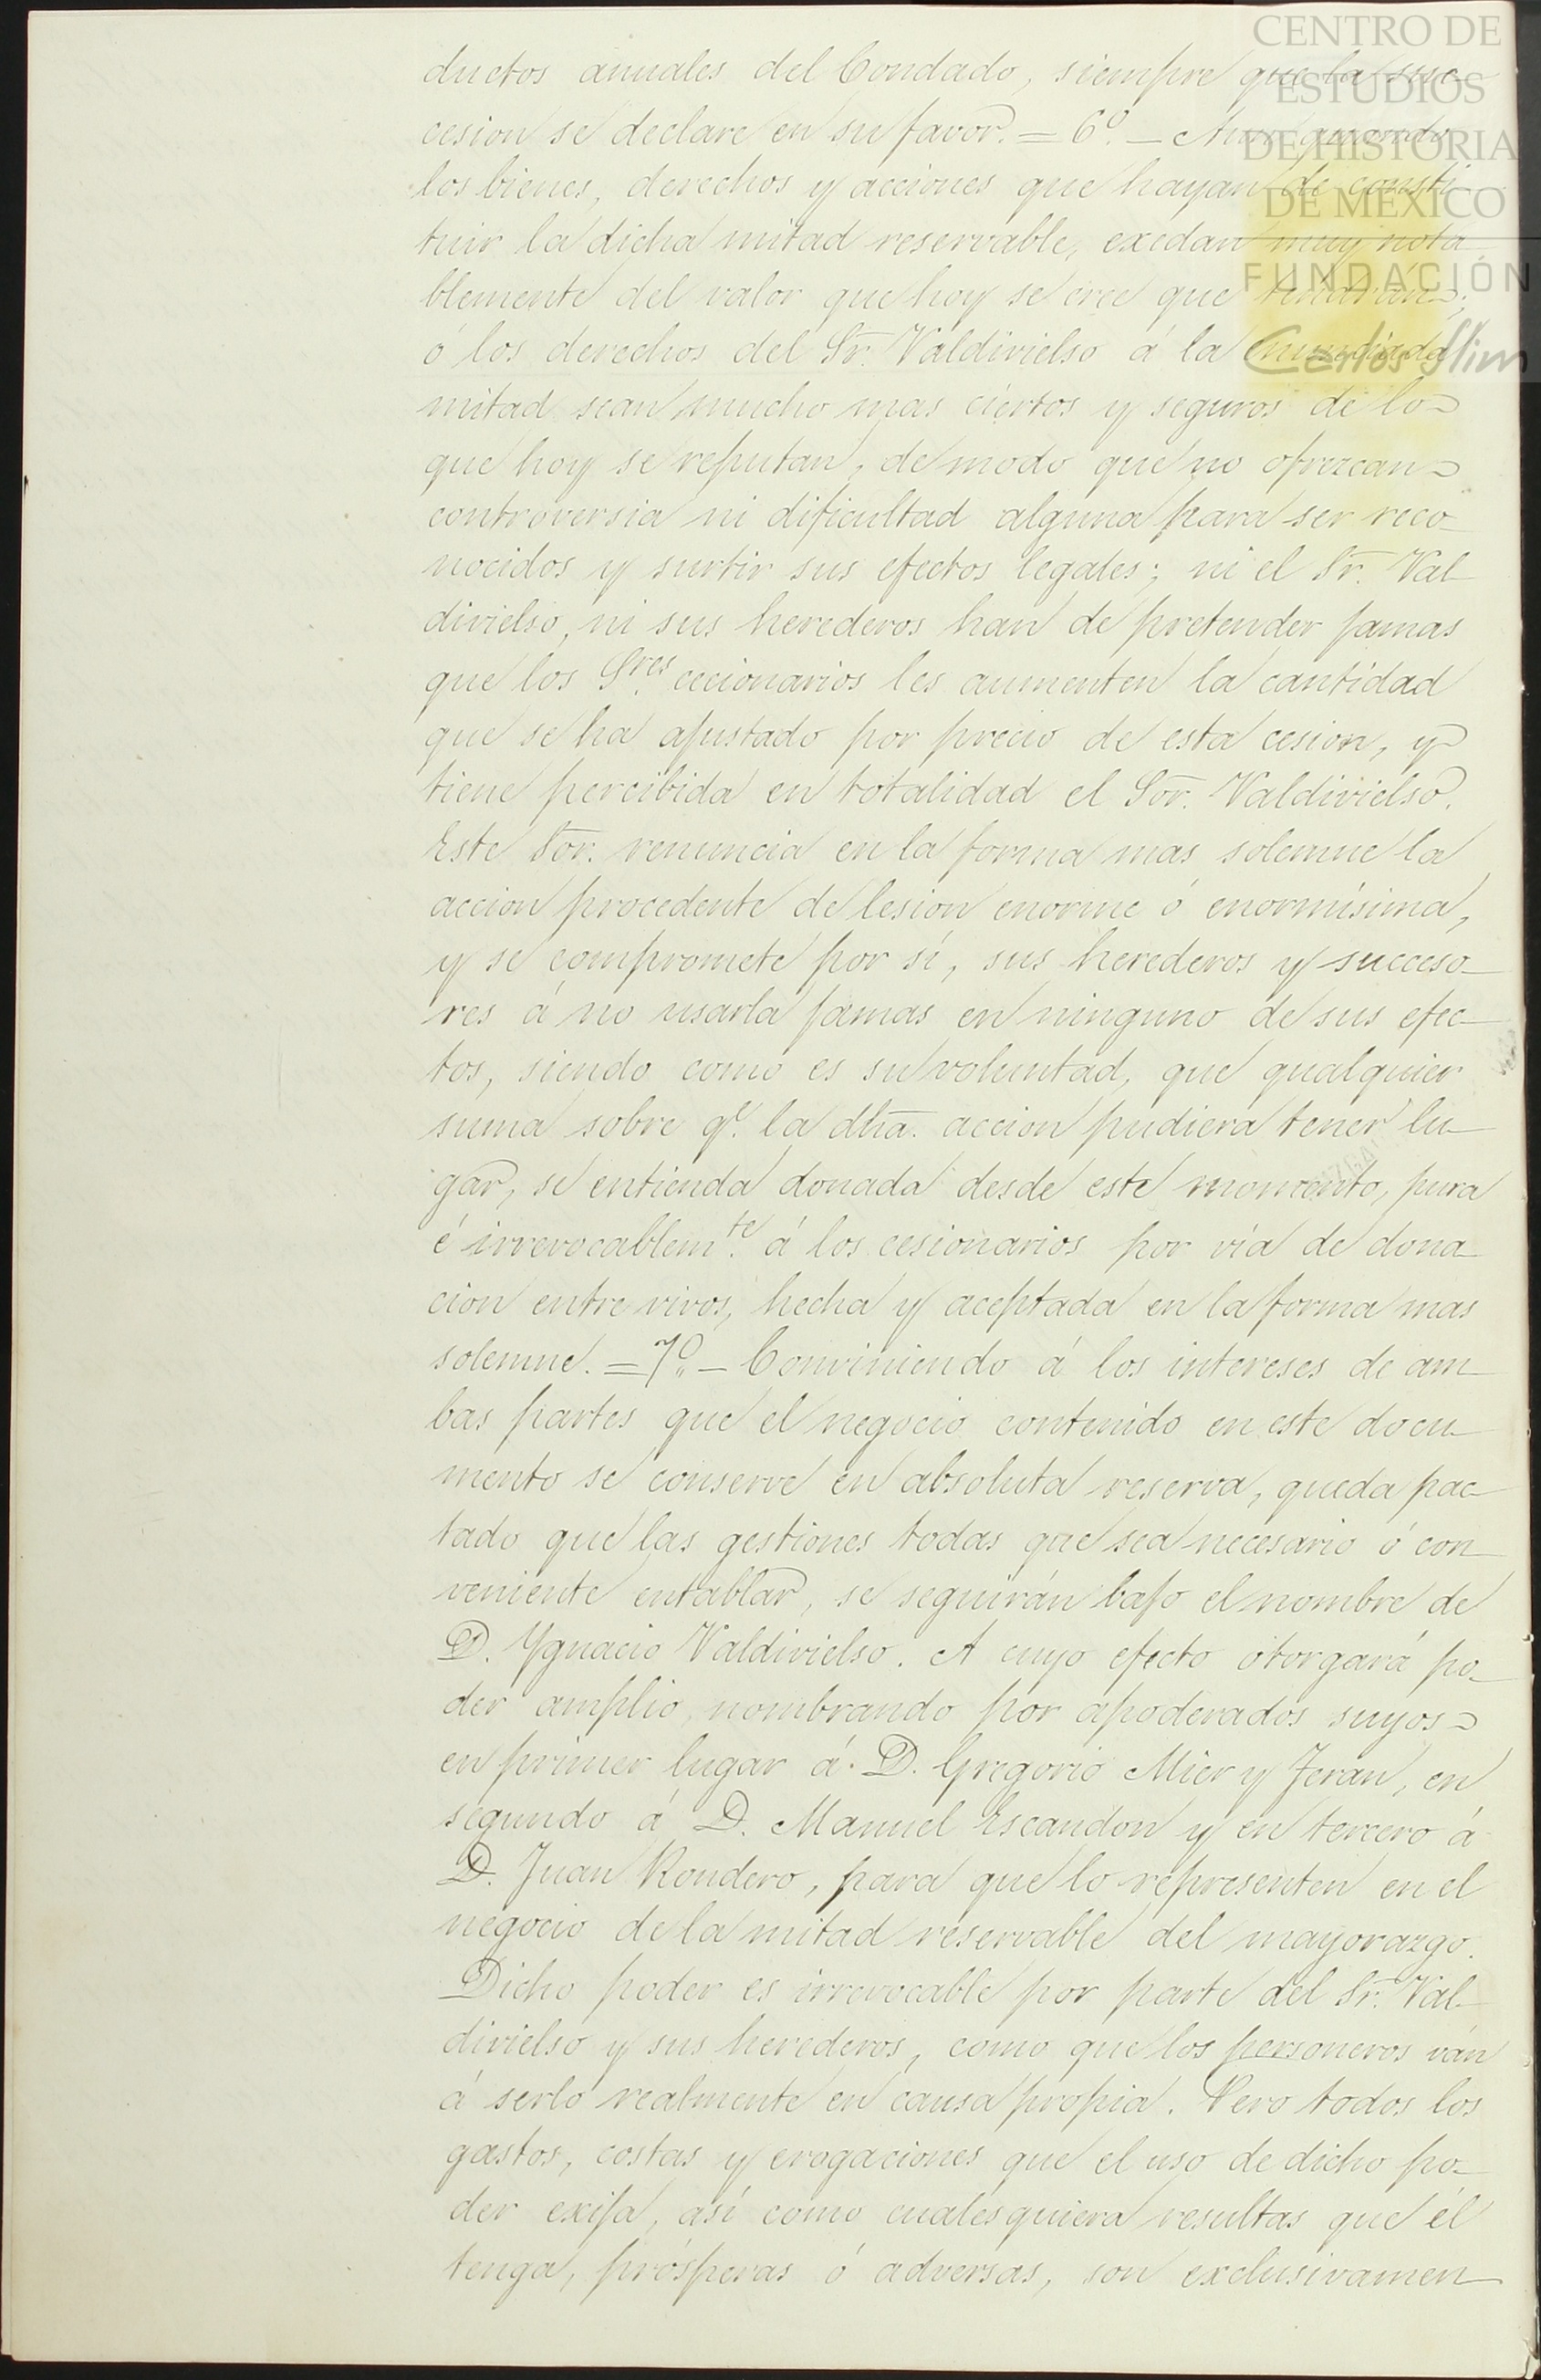 CENTRO DE
ESTUDIOS
DE HISTORIA
DE MÉXICO
FUNDACIÓN
Carlos Slim
ductos anuales del Condado, siempre que la suc-
cesion se declare en su favor. = 6º. _ Aun quando
los bienes, derechos y acciones que hayan de consti-
tuir la dicha mitad reservable, exedan muy nota-
blemente del valor que hoy se cree que tendrán;
ó los derechos del Sr. Valdivielso á la enunciada
mitad sean mucho mas ciertos y seguros de lo
que hoy se reputan, de modo que no ofrezcan
controversia ni dificultad alguna para ser reco-
nocidos y surtir sus efectos legales; ni el Sr. Val-
divielso, ni sus herederos han de pretender jamas
que los Sres. cecionarios les aumenten la cantidad
que se ha ajustado por precio de esta cesion, y
tiene percibida en totalidad el Sor. Valdivielso.
Este Sor. renuncia en la forma mas solemne la
accion procedente de lesion enorme ó enormísima,
y se compromete por sí, sus herederos y succeso-
res á no usarla jamas en ninguno de sus efec-
tos, siendo como es su voluntad, que qualquier
suma sobre qe. la dha. accion pudiera tener lu-
gar, se entienda donada desde este momento, pura
é irrevocablemte. á los cesionarios por vía de dona-
cion entre vivos, hecha y aceptada en la forma mas
solemne. = 7º. _ Conviniendo á los intereses de am-
bas partes que el negocio contenido en este docu-
mento se conserve en absoluta reserva, queda pac-
tado que las gestiones todas que sea necesario ó con-
veniente entablar, se seguirán bajo el nombre de
D. Ygnacio Valdivielso. A cuyo efecto otorgará po-
der amplio nombrando por apoderados suyos
en primer lugar á D. Gregorio Mier y Teran, en
segundo á D. Manuel Escandon y en tercero á
D. Juan Rondero, para que lo representen en el
negocio de la mitad reservable del mayorazgo.
Dicho poder es irrevocable por parte del Sr. Val-
divielso y sus herederos, como que los personeros ván
á serlo realmente en causa propia. Pero todos los
gastos, costas y erogaciones que el uso de dicho po-
der exija, así como cualesquiera resultas que él
tenga, prósperas ó adversas, son exclusivamen-